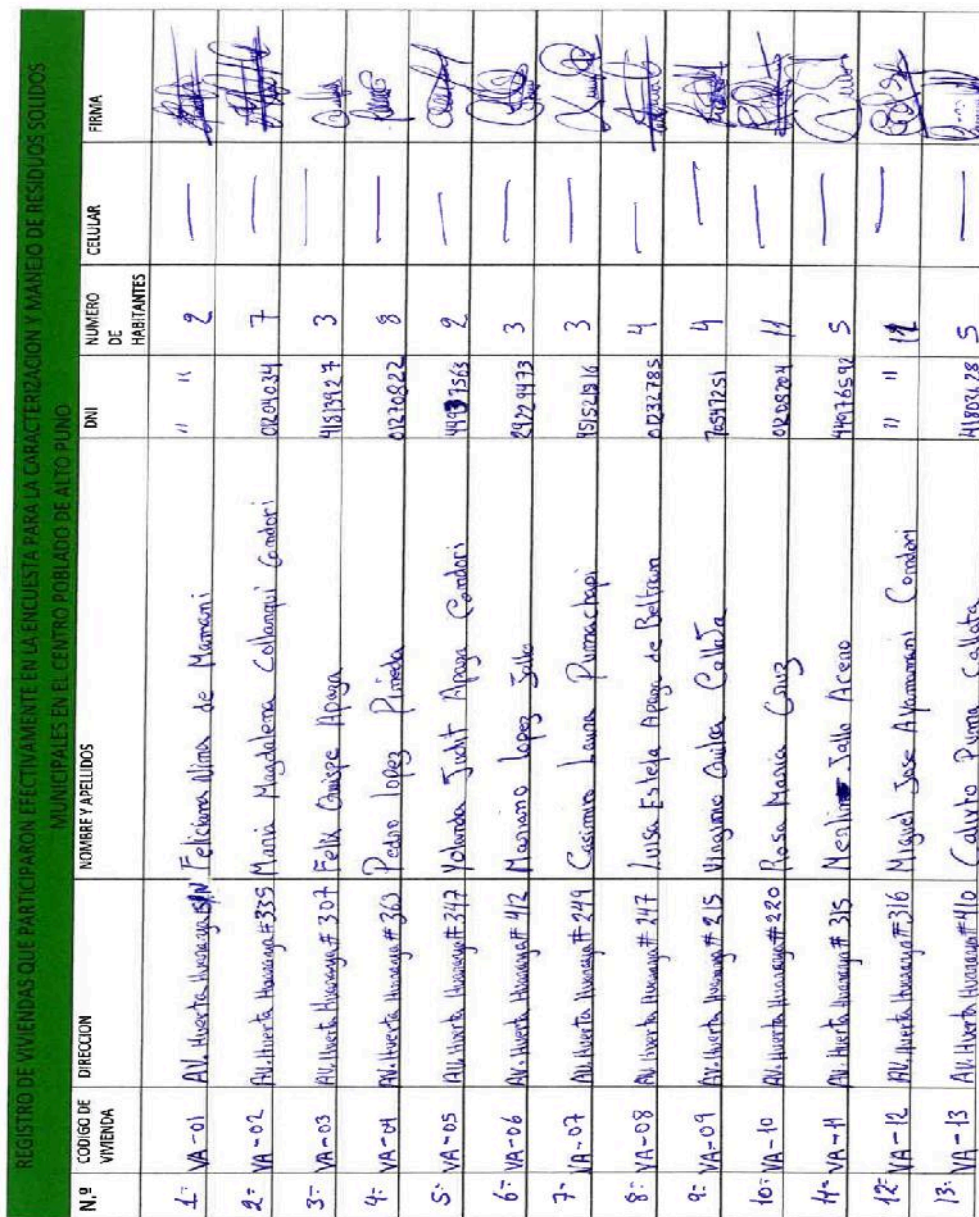 REGISTRO DE VIVIENDAS QUE PARTICIPARON EFECTIVAMENTE EN LA ENCUESTA PARA LA CARACTERIZACION Y MANEJO DE RESIDUOS SOLIDOS
MUNICIPALES EN EL CENTRO POBLADO DE ALTO PUNO
N.º CODIGO DE VIVIENDA DIRECCION NOMBRE Y APELLIDOS DNI NUMERO DE HABITANTES CELULAR FIRMA
1= VA-01 AV. Huerta Huaraya S/N Feliciana Alma de Mamani " " 2 —
2= VA-02 AV. Huerta Huaraya #335 Maria Magdalena Collanqui Condori 01204034 7 —
3= VA-03 AV. Huerta Huaraya #307 Felix Quispe Apaza 41813927 3 —
4= VA-04 AV. Huerta Huaraya #363 Pedro Lopez Pineda 01270822 8 —
5= VA-05 AV. Huerta Huaraya #347 Yolanda Judit Apaza Condori 2 —
6= VA-06 AV. Huerta Huaraya #412 Mariano Lopez Jallo 29229473 3 —
7= VA-07 AV. Huerta Huaraya #249 Casimiro Laura Pumachapi 3 —
8= VA-08 AV. Huerta Huaraya #247 Luisa Estela Apaza de Beltran 01232785 4 —
9= VA-09 AV. Huerta Huaraya #215 70547251 4 —
10= VA-10 AV. Huerta Huaraya #220 Rosa Maria Cruz 01208204 11 —
11= VA-11 AV. Huerta Huaraya #315 Jallo Acero 44976592 5 —
12= VA-12 AV. Huerta Huaraya #316 Miguel Jose Ayamani Condori " " —
13= VA-13 AV. Huerta Huaraya #410 Calixto Puma Callata 41803628 5 —